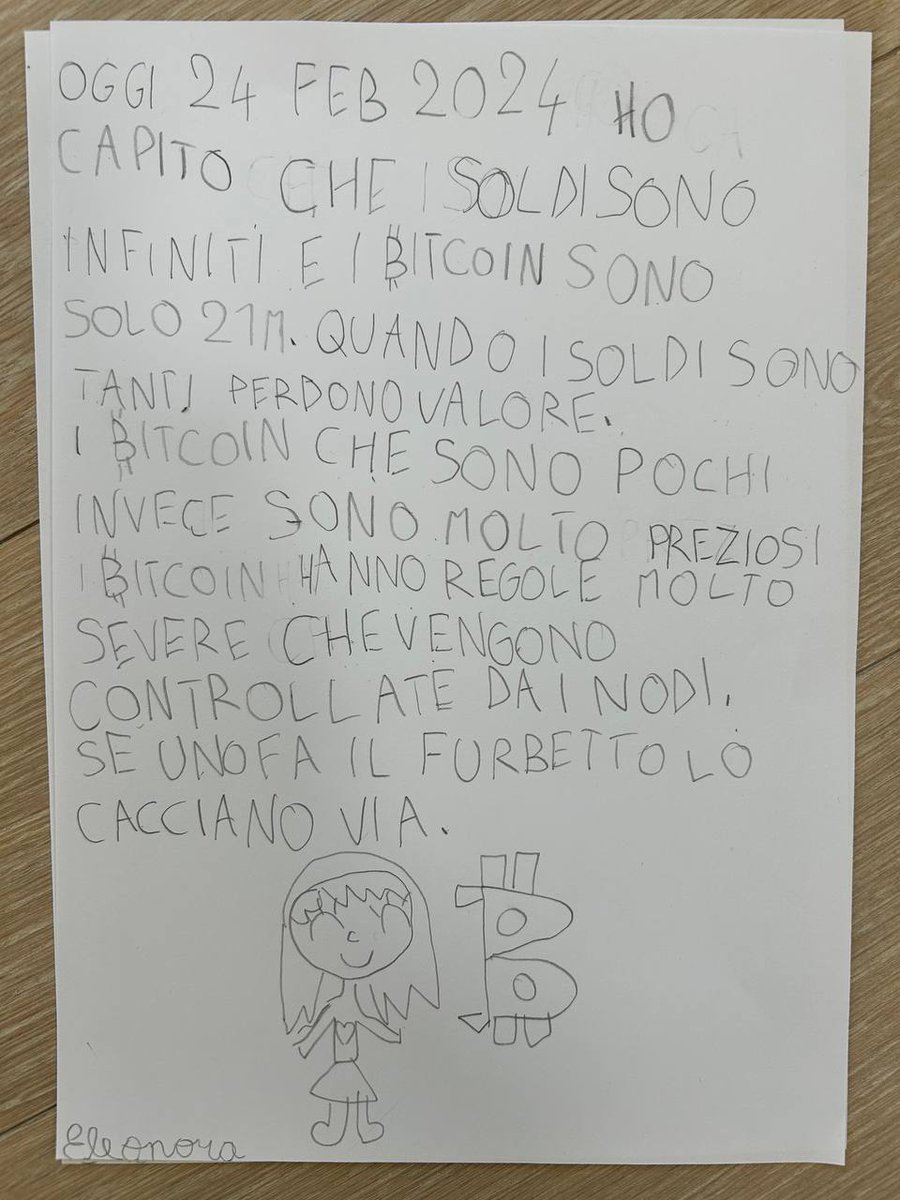 OGGI 24 FEB 2024 HO
CAPITO CHE I SOLDI SONO
INFINITI E I ₿ITCOIN SONO
SOLO 21M. QUANDO I SOLDI SONO
TANTI PERDONO VALORE.
I ₿ITCOIN CHE SONO POCHI
INVECE SONO MOLTO PREZIOSI
I ₿ITCOIN HANNO REGOLE MOLTO
SEVERE CHE VENGONO
CONTROLLATE DAI NODI.
SE UNO FA IL FURBETTO LO
CACCIANO VIA.
Eleonora